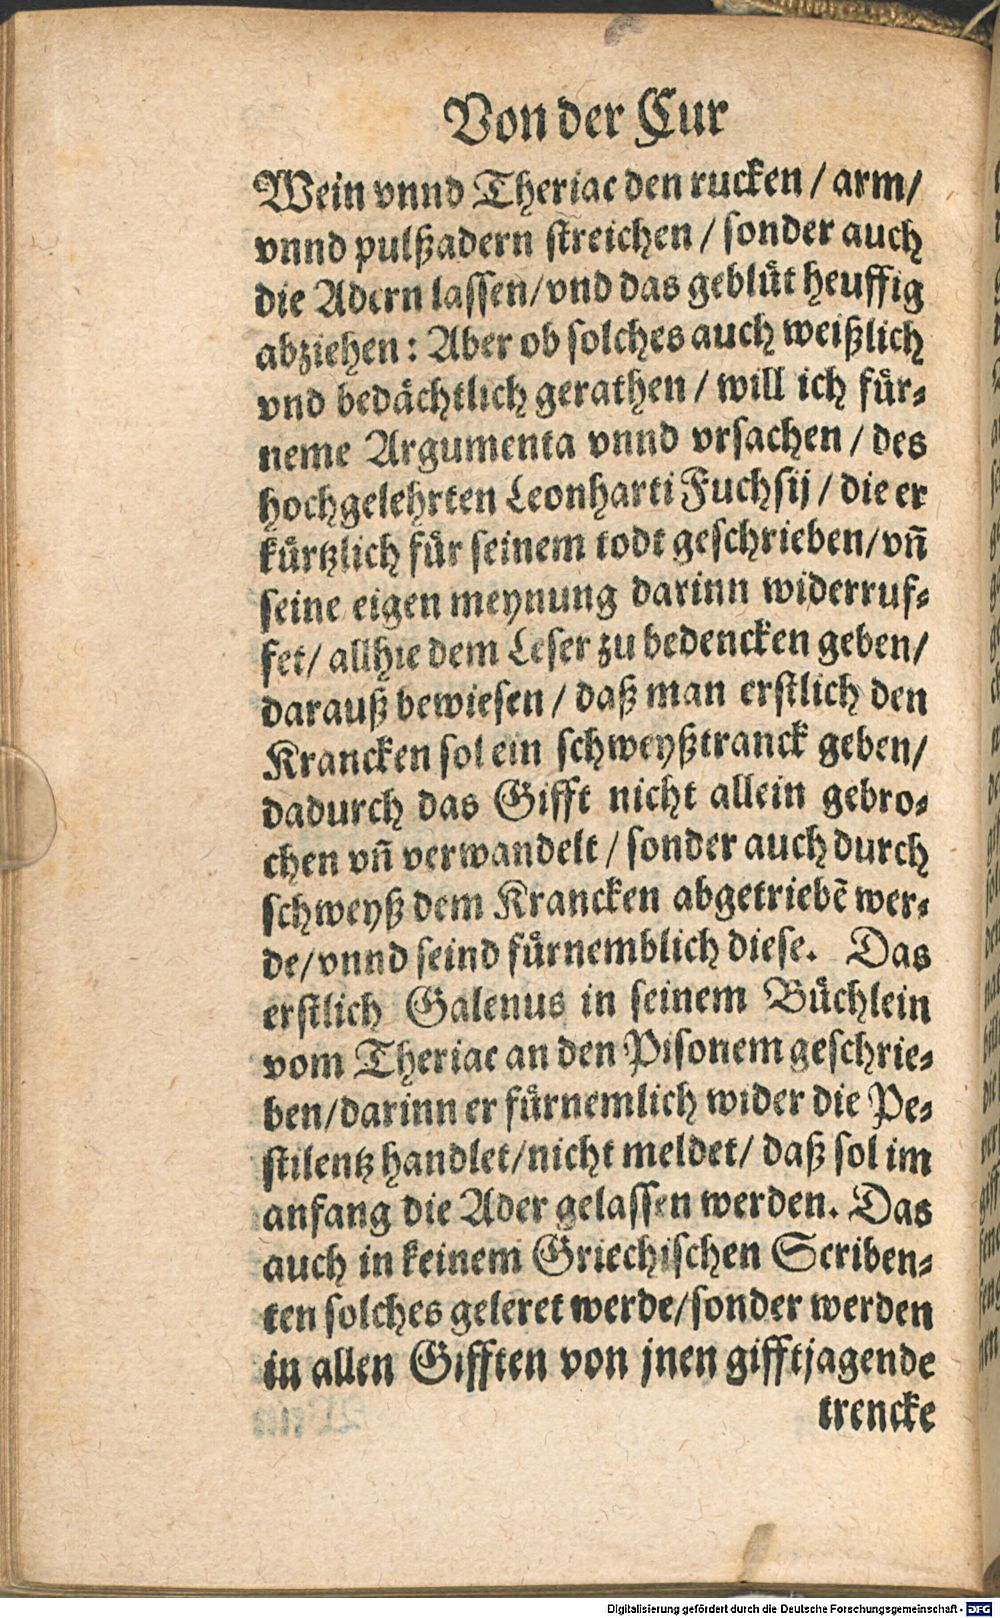 Von der Cur
Wein vnnd Theriac den rucken / arm/
vnnd pulßadern streichen / sonder auch
die Adern lassen/vnd das geblüt heuffig
abziehen: Aber ob solches auch weißlich
vnd bedächtlich gerathen / will ich für⸗
neme Argumenta vnnd vrsachen / des
hochgelehrten Leonharti Fuchsij / die er
kürtzlich für seinem todt geschrieben/vn̄
seine eigen meynung darinn widerruf⸗
fet/ allhie dem Leser zu bedencken geben/
darauß bewiesen / daß man erstlich den
Krancken sol ein schweyßtranck geben/
dadurch das Gifft nicht allein gebro⸗
chen vn̄ verwandelt / sonder auch durch
schweyß dem Krancken abgetriebē wer⸗
de/vnnd seind fürnemblich diese. Das
erstlich Galenus in seinem Büchlein
vom Theriac an den Pisonem geschrie⸗
ben/darinn er fürnemlich wider die Pe⸗
stilentz handlet/nicht meldet/ daß sol im
anfang die Ader gelassen werden. Das
auch in keinem Griechischen Scriben⸗
ten solches geleret werde/sonder werden
in allen Gifften von jnen gifftjagende
trencke
Digitalisierung gefördert durch die Deutsche Forschungsgemeinschaft - DFG